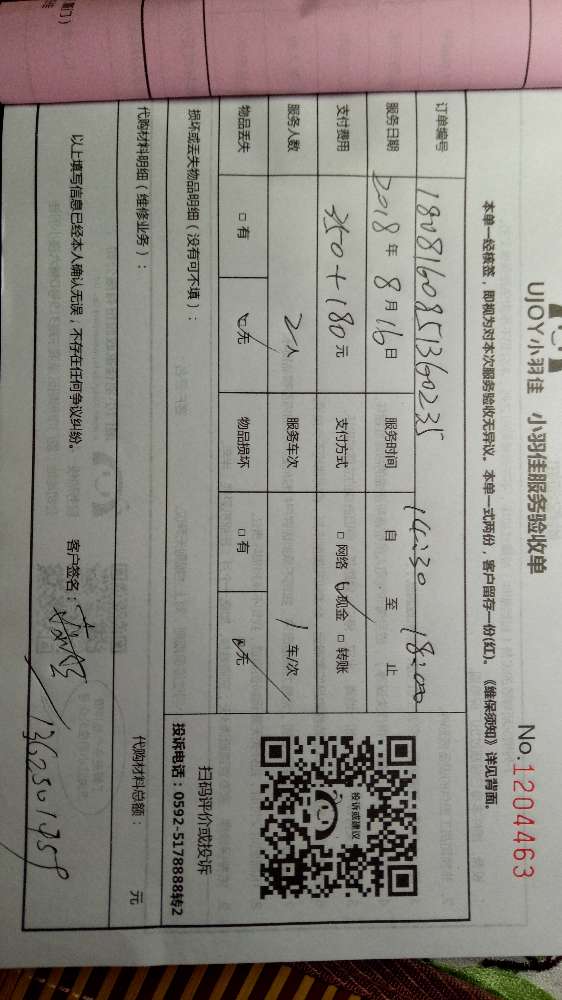 UJOY小羽佳 小羽佳服务验收单
No.1204463
本单一经核签，即视为对本次服务验收无异议。本单一式两份，客户留存一份(红)。《维保须知》详见背面。
订单编号 1808160851360235
服务日期 2018年8月16日 服务时间 自14:30至18:00止
支付费用 350+180元 支付方式 □网络 ☑现金 □转账
服务人数 2人 服务车次 1车/次
物品丢失 □有 ☑无 物品损坏 □有 ☑无
投诉或建议
扫码评价或投诉
投诉电话：0592-5178888转2
损坏或丢失物品明细（没有可不填）：
代购材料明细（维修业务）： 代购材料总额： 元
以上填写信息已经本人确认无误，不存在任何争议纠纷。 客户签名：